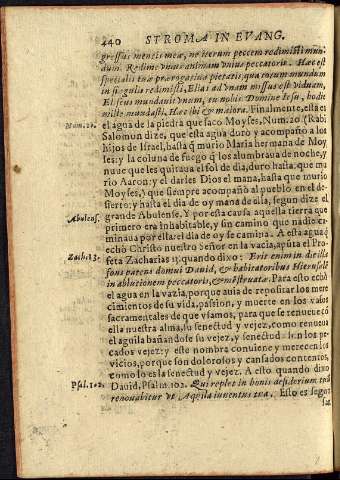 440 STROMA IN EVANG.
gressus mentis meæ, ne iterum peccem redimisti mun-
dum. Redime vnus animam vnius peccatoris. Hæc est
specialis tuæ prærogatiua pietatis, qua totum mundum
in singulis redimisti, Elias ad vnam missus est viduam,
Eliseus mundauit vnum, tu nobis Domine Iesu, hodie
mille mundasti. Hæc ibi & maiora. Finalmente, ella es
Num. 20. el agua de la piedra que saco Moyses, Num. 20. (Rabi
Salomon dize, que esta agua duro y acompaño a los
hijos de Israel, hasta q̃ murio Maria hermana de Moy
ses: y la coluna de fuego q̃ los alumbraua de noche, y
nuue que les quitaua el sol de dia, duro hasta que mu
rio Aaron: y el darles Dios el mana, hasta que murio
Moyses,) que siempre acompañò al pueblo en el de-
sierto: y hasta el dia de oy mana de ella, segun dize el
Abulens. grande Abulense. Y por esta causa aquella tierra que
primero era inhabitable, y sin camino que nadie ca-
minaua por ella: el dia de oy se camina. A esta agua q̃
echò Christo nuestro Señor en la vacia, apũta el Pro
Zach. 13. feta Zacharias 13. quando dixo: Erit enim in die illa
fons patens domui Dauid, & habitatoribus Hierusalẽ
in ablutionem peccatoris, & mẽstruatæ. Para esto echò
el agua en la vazia, porque auia de repositar los mere
cimientos de su vida, passion, y muerte en los vasos
sacramentales de que vsamos, para que se renueue cõ
ella nuestra alma, su senectud y vejez, como renueua
el aguila bañandose su vejez, y senectud. Son los pe-
cados vejez: y este nombre conuiene y merecen los
vicios, porque son dolorosos y cansados contentos,
como lo es la senectud y vejez. A esto quando dixo
Psal. 102. Dauid, Psalm. 102. Qui replet in bonis desiderium tuũ
renouabitur vt Aquilæ iuuentus tua. Esto es segun